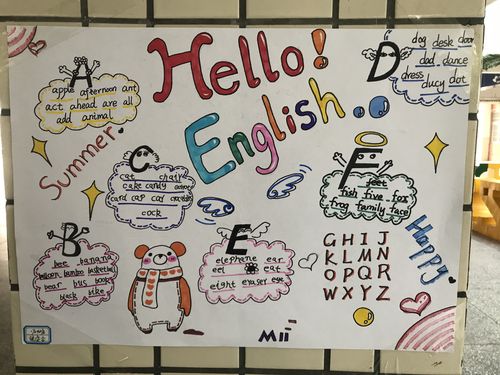 Hello!
English.
A
apple afternoon ant
act ahead are all
add animal
D
dog desk door
dad dance
dress
ducy dot
Summer
C
cat chair
cake candy
card cap car
cock
F
feet
fish five fox
frog family face
B
bee banana
balloon bamboo basketball
bear bus book
black bike
E
elephone ear
eel eat
eight eraser eye
G H I J
K L M N
O P Q R
W X Y Z
Happy
Mii